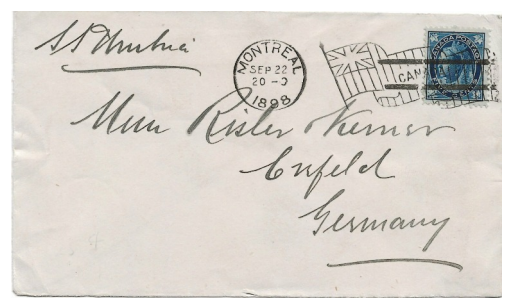 SS Umbria
MONTREAL
SEP 22
20-0
1898
CANADA POSTAGE
CANA
Risler
Crefeld
Germany